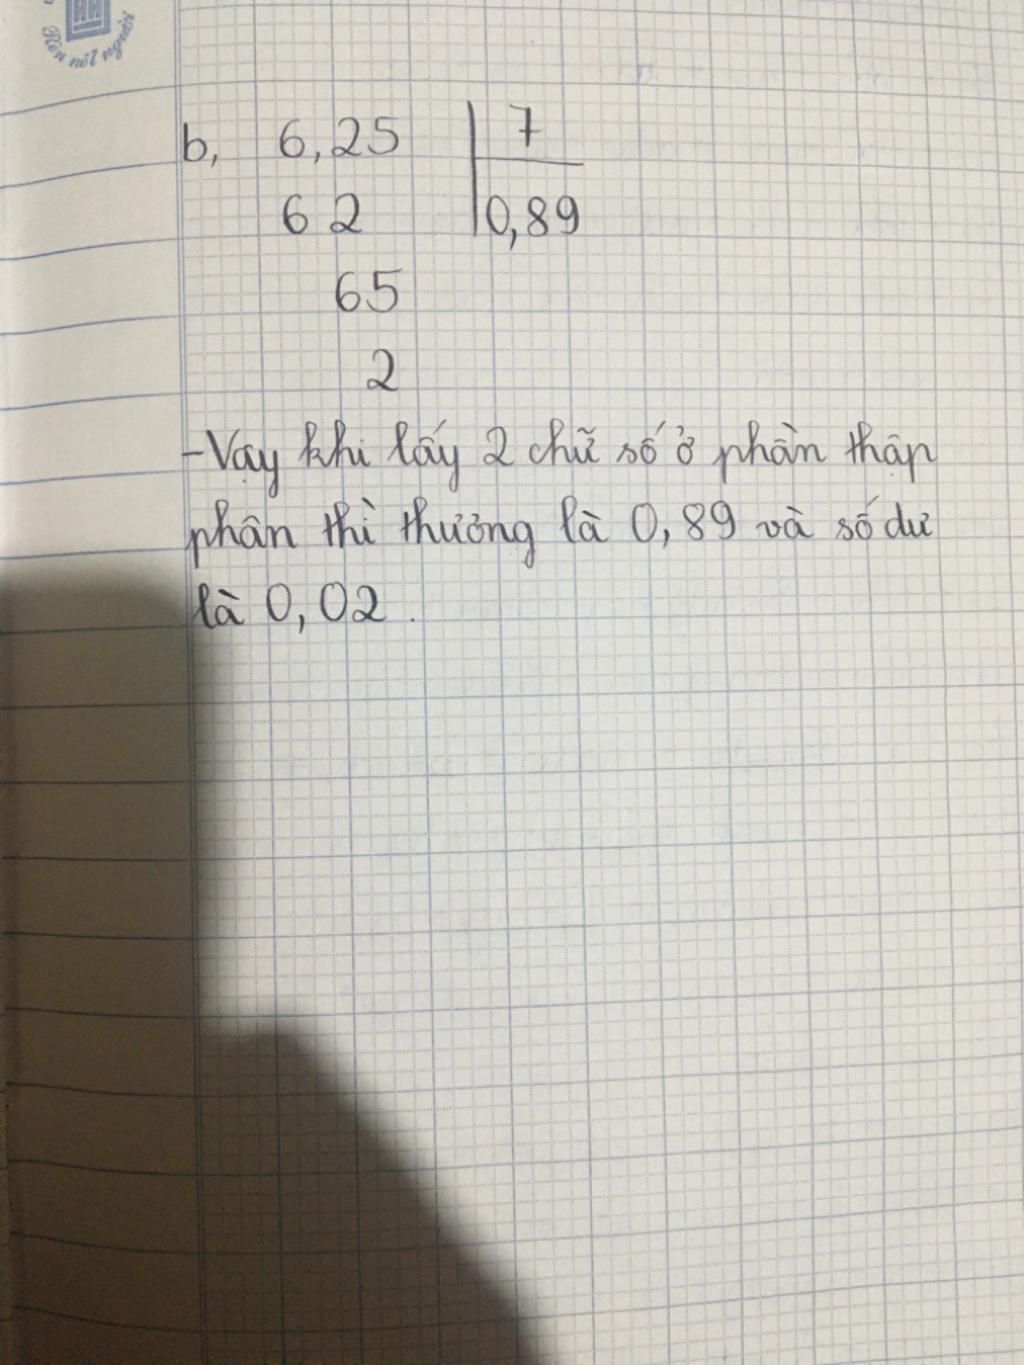 Rèn nết người
b, 6,25 7
6 2 0,89
65
2
-Vậy khi lấy 2 chữ số ở phần thập
phân thì thương là 0,89 và số dư
là 0,02.